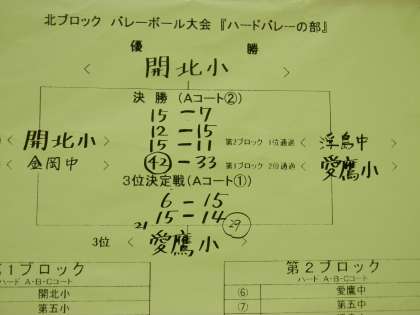 北ブロック バレーボール大会 『ハードバレーの部』
優 勝
< 開北小 >
決 勝 (Aコート②)
15 - 7
< 開北小 > 12 - 15 < 浮島中 >
15 - 11 第2ブロック 1位通過
< 金岡中 > 42 - 33 第1ブロック 2位通過 < 愛鷹小 >
3位決定戦(Aコート①)
6 - 15
15 - 14
21 29
3位 < 愛鷹小 >
第1ブロック 第2ブロック
ハード A・B・Cコート ハード A・B・Cコート
開北小 (6) 愛鷹中
第五小 (7) 第五中